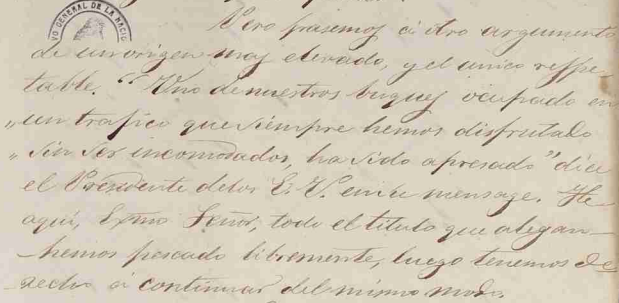 VO GENERAL DE LA NACIO
Pero pasemos á otro argumento
de un origen mas elevado, y el unico respe-
table. "Uno de nuestros buques ocupado en
"un trafico que siempre hemos disfrutado
"sin ser incomodados, ha sido apresado" dice
el Presidente de los E. U. en su mensage. He
aqui, Exmo Señor, todo el titulo que alegan-
-hemos pescado libremente, luego tenemos de
recho á continuar del mismo modo.